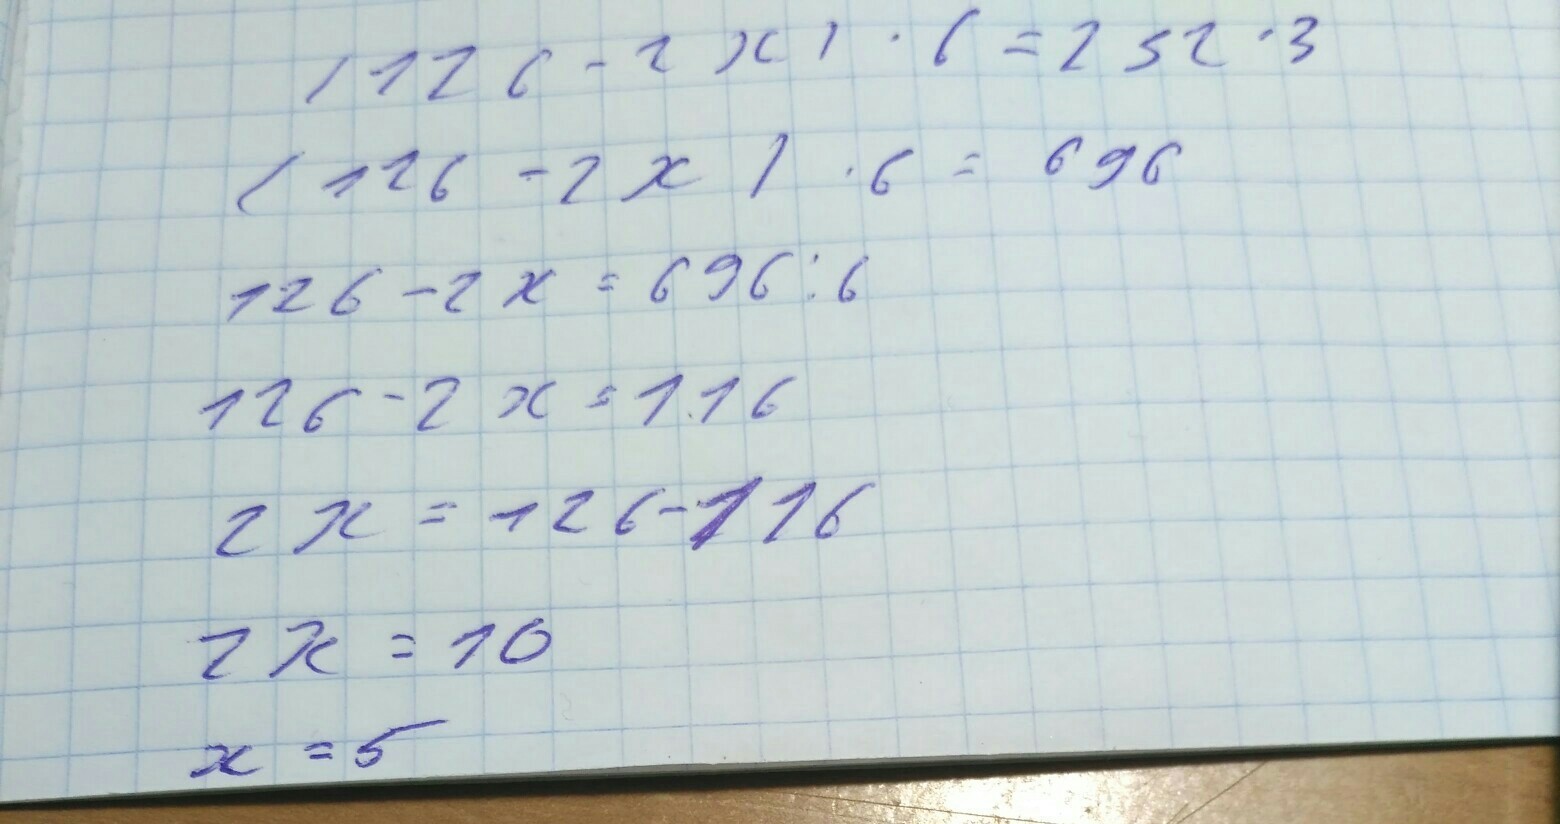 (126 - 2x) · 6 = 252 · 3
(126 - 2x) · 6 = 696
126 - 2x = 696 : 6
126 - 2x = 116
2x = 126 - 116
2x = 10
x = 5